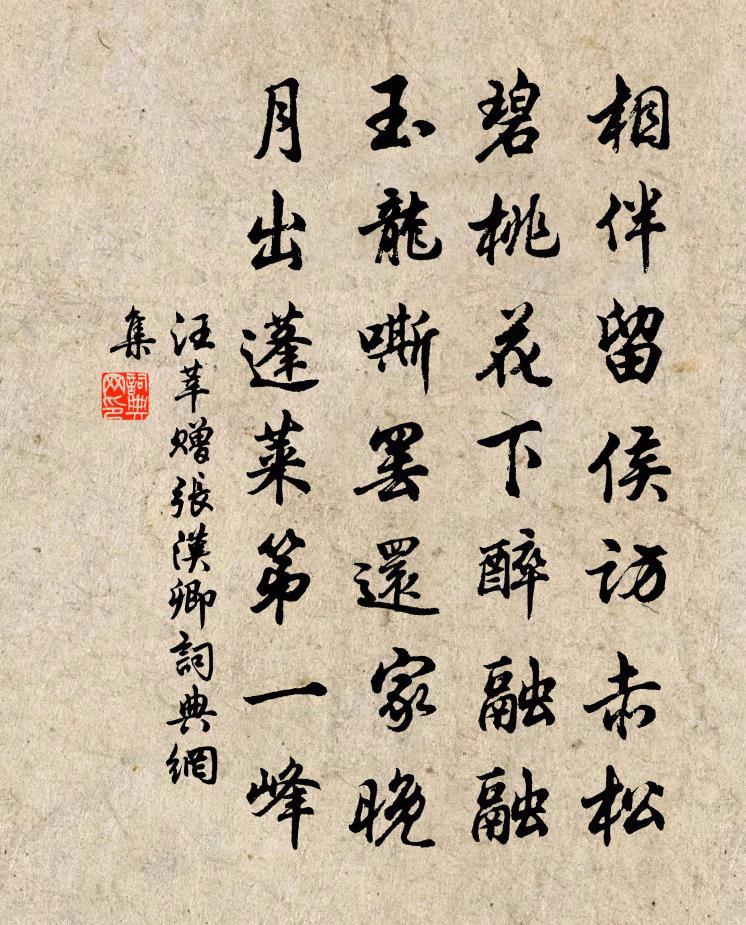 相伴留侯訪赤松
碧桃花下醉融融
玉龍嘶罷還家晚
月出蓬萊第一峰
汪莘贈張漢卿詞典網
集
詞典
网印